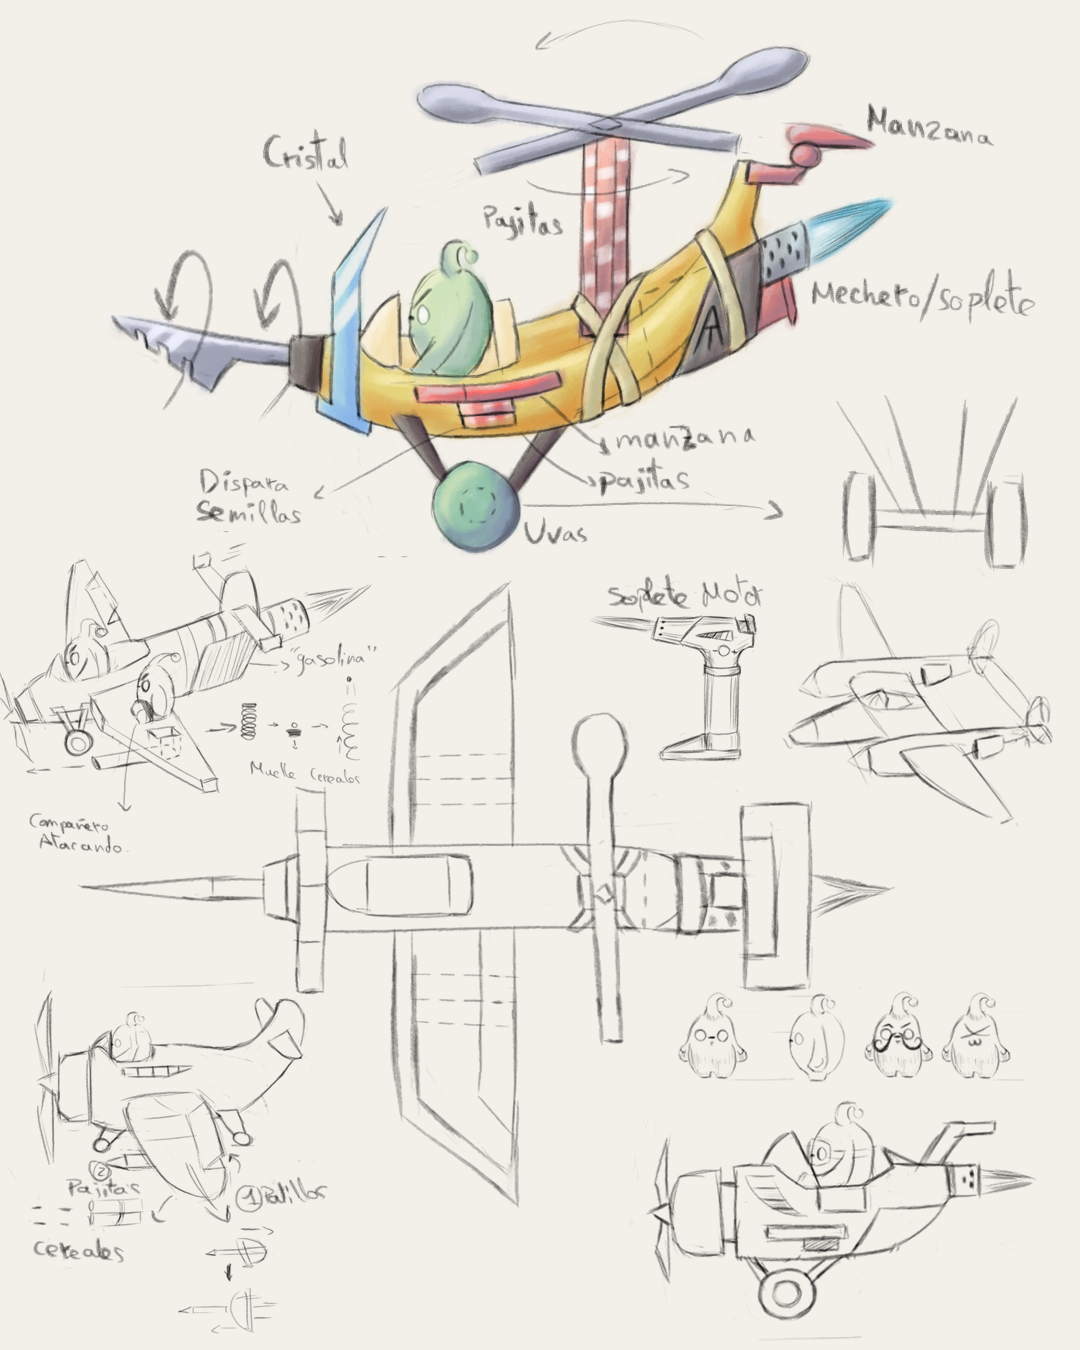 Manzana
Cristal
Pajitas
Mechero/soplete
manzana
pajitas
Dispara
semillas
Uvas
soplete Motor
"gasolina"
Muelle Cereales
Compañero
Atacando.
2
Pajitas
1 Palillos
cereales